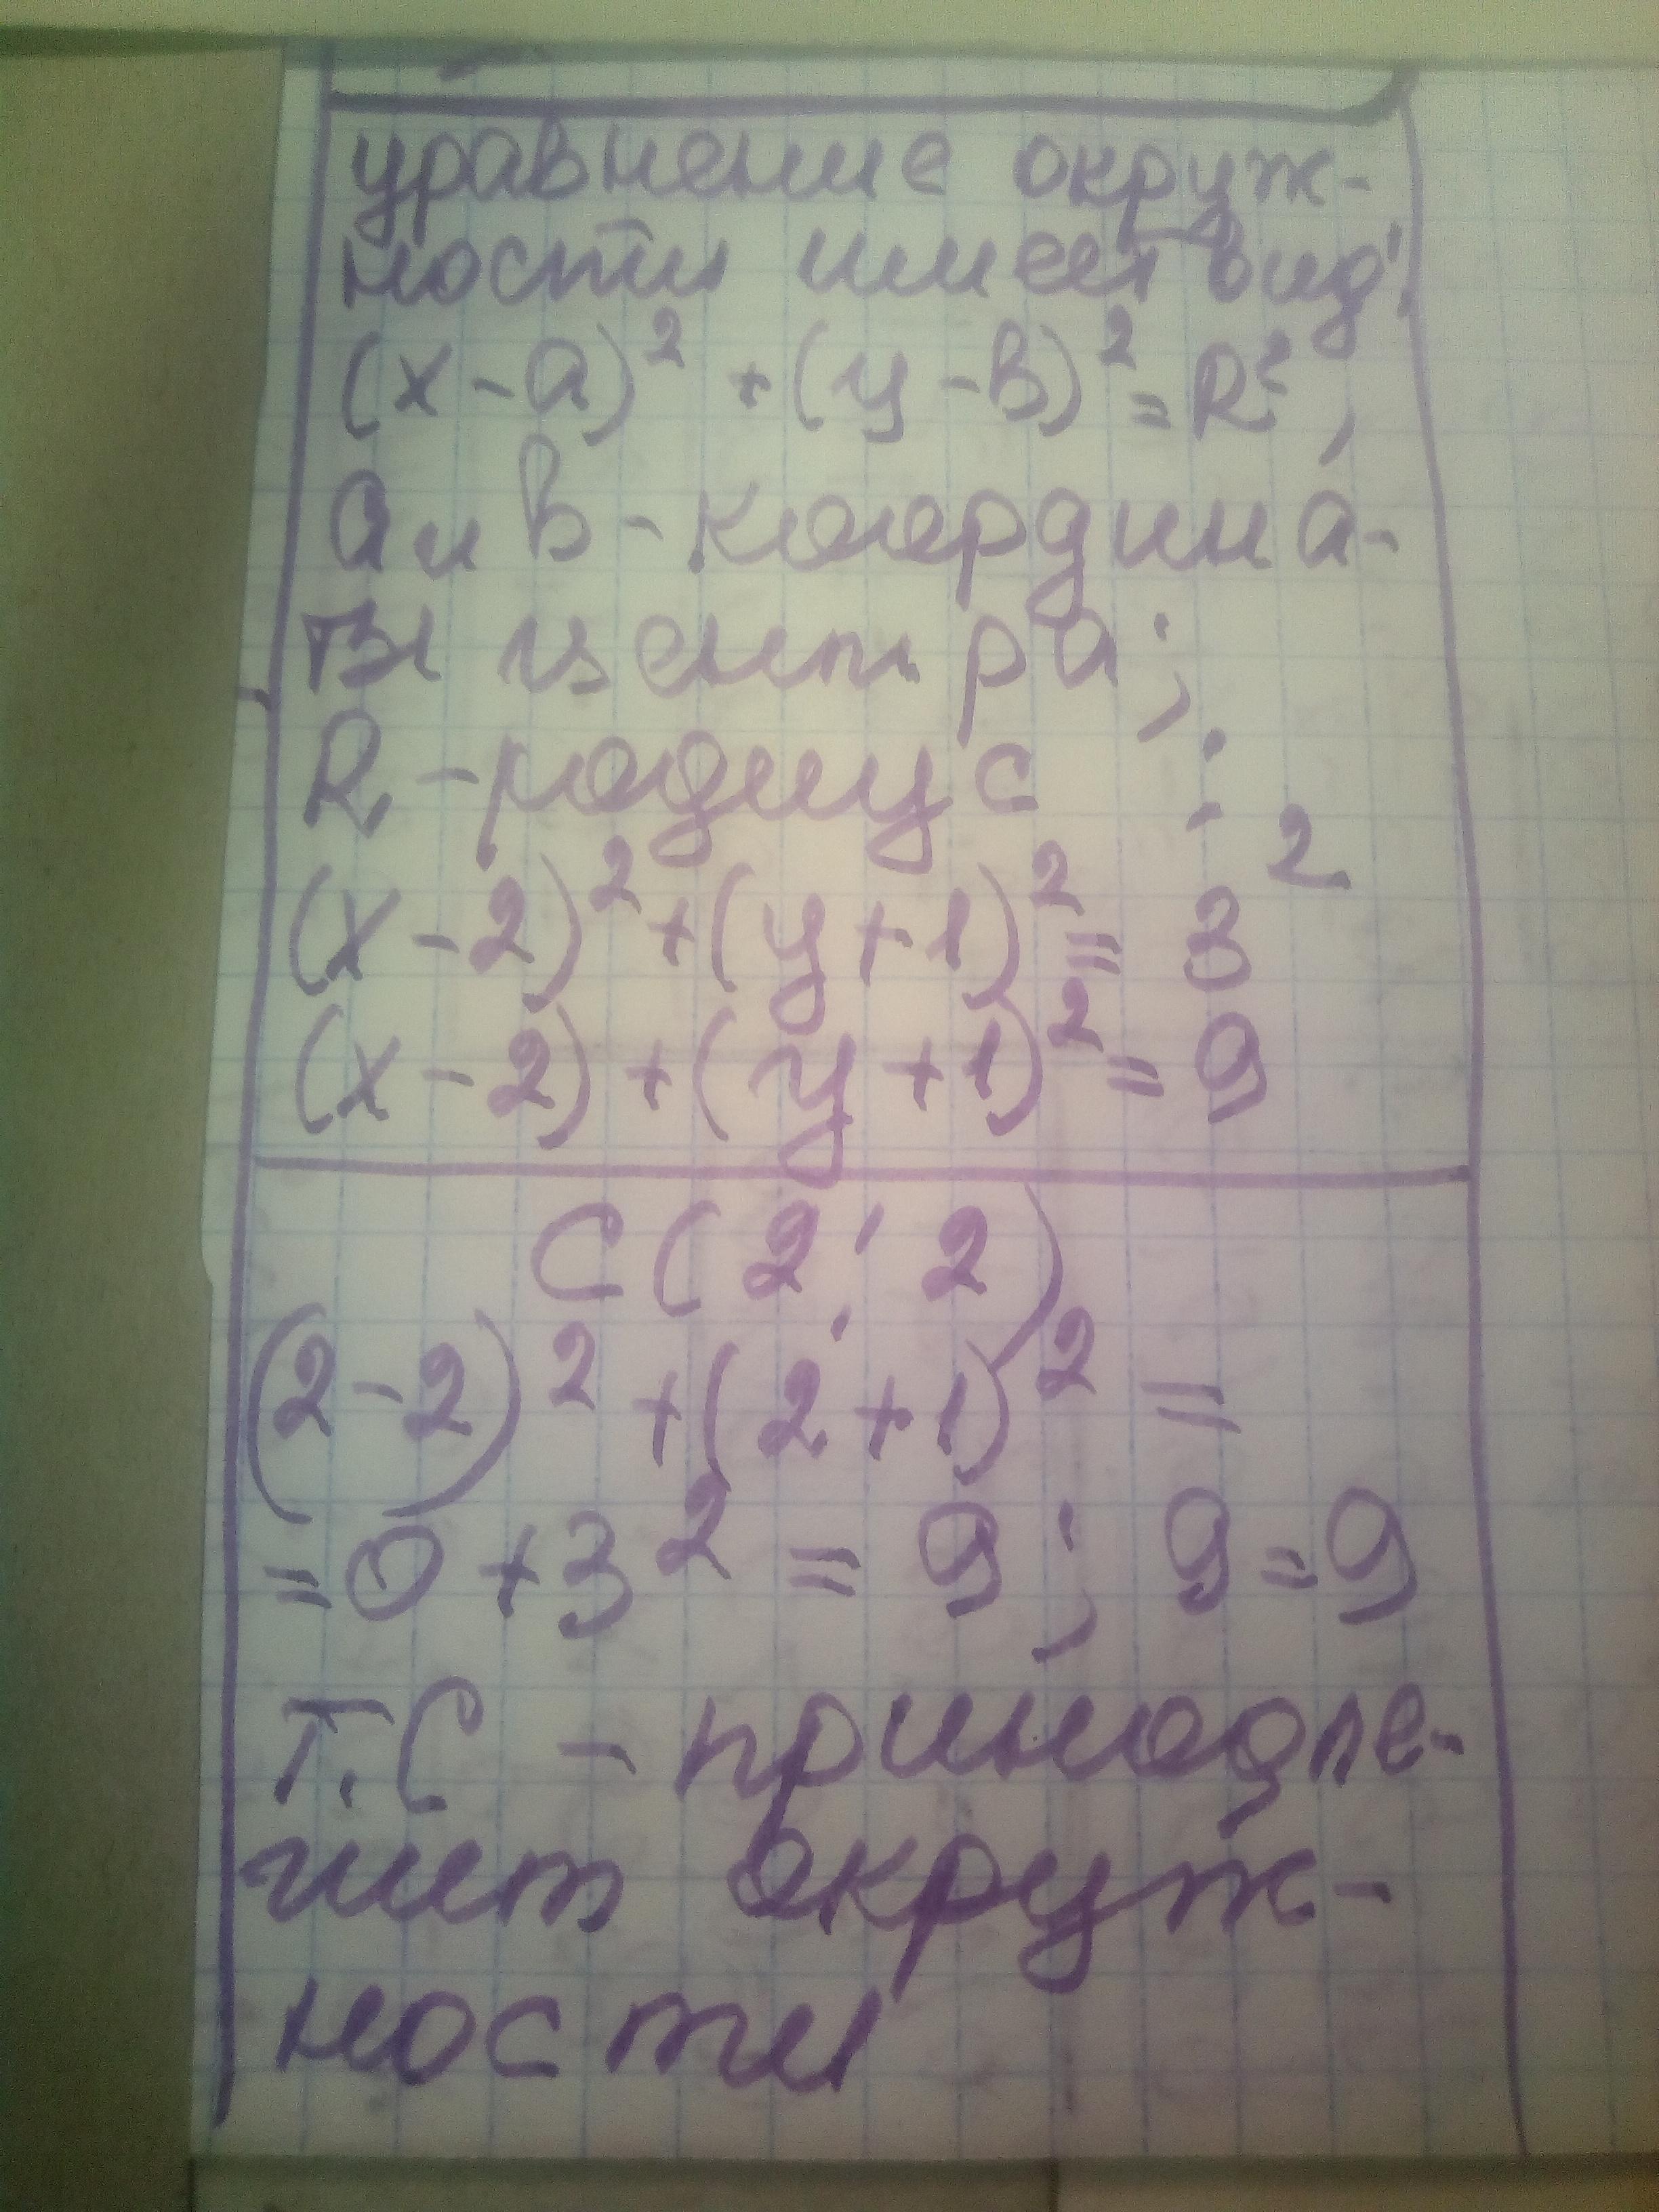 уравнение окруж-
ности имеет вид:
(x-a)² + (y-b)² = R²,
a и b - коордиона-
ты центра;
R - радиус :
(x-2)² + (y+1)² = 3²
(x-2) + (y+1)² = 9
C(2; 2)
(2-2)² + (2+1)² =
= 0 + 3² = 9; 9 = 9
т. C - принадле-
жит окруж-
ности